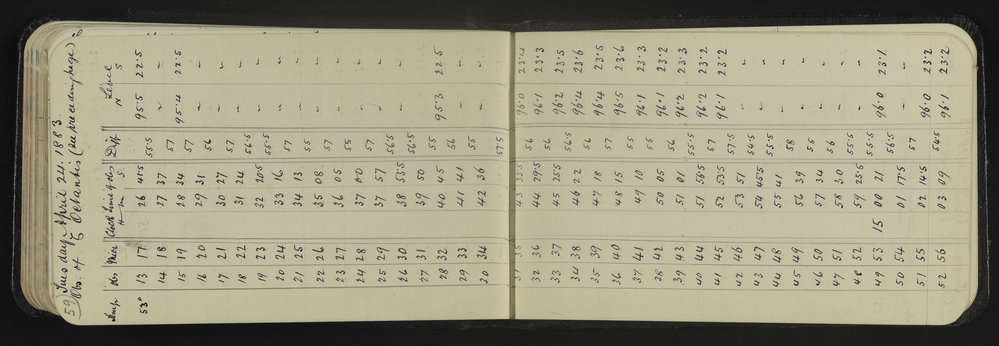 59 Tuesday April 24. 1883
Obs. of ζ Octantis (see preceding page)
Temp Obs Micr Clock time of obs Diff Level
H m s N S
53° 13 17 26 41.5 95.5 22.5
55.5
14 18 27 37 " "
57
15 19 28 34 95.4 22.5
57
16 20 29 31 " "
56
17 21 30 27 " "
57
18 22 31 24 " "
56.5
19 23 32 20.5 " "
55.5
20 24 33 16 " "
57
21 25 34 13 " "
55
22 26 35 08 " "
57
23 27 36 05 " "
55
24 28 37 00 " "
57
25 29 37 57 " "
56.5
26 30 38 53.5 " "
56.5
27 31 39 50 " "
55
28 32 40 45 95.3 22.5
56
29 33 41 41 " "
55
30 34 42 36 " "
57.5
31 35 43 33.5 96.0 23.4
56
32 36 44 29.5 96.1 23.3
56
33 37 45 25.5 96.2 23.5
56.5
34 38 46 22 96.4 23.6
56
35 39 47 18 96.4 23.5
57
36 40 48 15 96.5 23.6
55
37 41 49 10 96.1 23.3
55
38 42 50 05 96.1 23.2
56
39 43 51 01 96.2 23.3
55.5
40 44 51 56.5 96.2 23.2
57
41 45 52 53.5 96.1 23.2
57.5
42 46 53 51 " "
54.5
43 47 54 45.5 " "
55.5
44 48 55 41 " "
58
45 49 56 39 " "
55
46 50 57 34 " "
56
47 51 58 30 " "
55.5
48 52 59 25.5 " "
55.5
49 53 15 00 21 96.0 23.1
56.5
50 54 01 17.5 " "
57
51 55 02 14.5 96.0 23.2
54.5
52 56 03 09 96.1 23.2